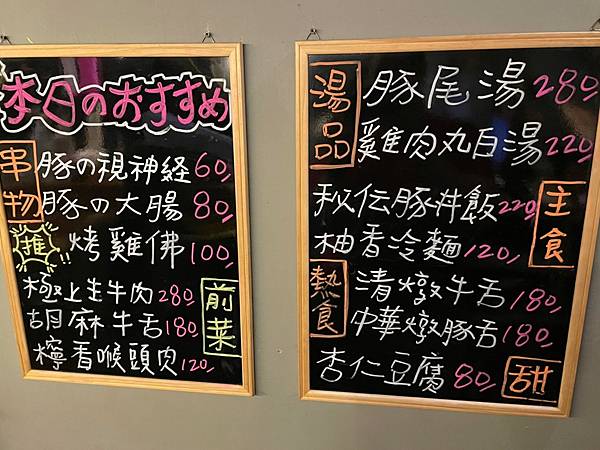 本日のおすすめ
串物
豚の視神経 60,
豚の大腸 80,
推 烤雞佛 100,
前菜
極上生牛肉 280,
胡麻牛舌 180,
檸香喉頭肉 120,
湯品
豚尾湯 280,
雞肉丸白湯 220,
主食
秘伝豚丼飯 220,
柚香冷麵 120,
熱食
清燉牛舌 180,
中華燉豚舌 180,
杏仁豆腐 80, 甜